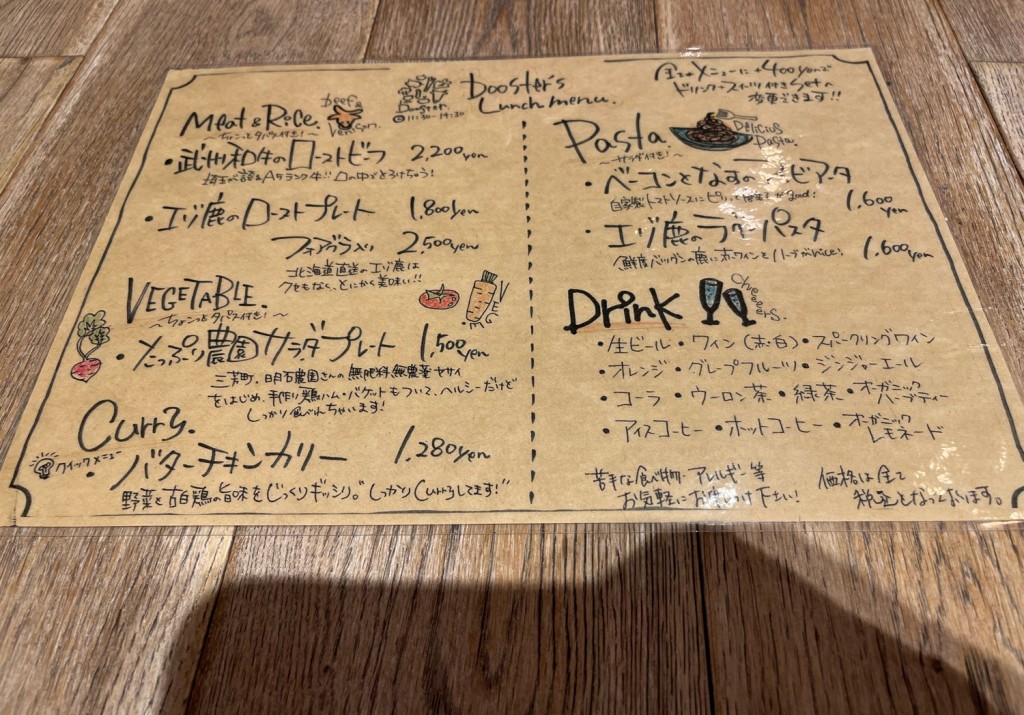 Dooster's
Lunch menu.
Dooster.
11:30-14:30
全てのメニューに+400yenで
ドリンク+スイーツ付きSetへ
変更できます!!
Meat & Rice.
beef &
Venison.
〜ちょこっとタパス付き!〜
・武州和牛のローストビーフ 2,200yen
埼玉が誇るA5ランク牛!!口の中でとろけちゃう!
・エゾ鹿のローストプレート 1,800yen
フォアグラ入り 2,500yen
北海道直送のエゾ鹿は
クセもなく、とにかく美味い!!
VEGETABLE.
VEG
〜ちょこっとタパス付き!〜
・たっぷり農園サラダプレート 1,500yen
三芳町、明石農園さんの無肥料無農薬ヤサイ
をはじめ、手作り鶏ハム・バゲットもついて、ヘルシーだけど
しっかり食べれちゃいます!
Curry.
クイックメニュー
・バターチキンカリー 1,280yen
野菜と古白鶏の旨味をじっくりギッシリ。"しっかりCurryしてます!"
Pasta.
Delicius
Pasta.
〜サラダ付き!〜
・ベーコンとなすのアラビアータ
自家製トマトソースにピリッと good!
1,600
yen
・エゾ鹿のラグーパスタ
鮮度バツグンの鹿に赤ワインとハーブが
1,600yen
Drink
Cheeeers.
・生ビール ・ワイン(赤・白) ・スパークリングワイン
・オレンジ ・グレープフルーツ ・ジンジャーエール
・コーラ ・ウーロン茶 ・緑茶 ・オーガニック
ハーブティー
・アイスコーヒー ・ホットコーヒー ・オーガニック
レモネード
苦手な食べ物・アレルギー等
お気軽にお申しつけ下さい!
価格は全て
税込となっております。